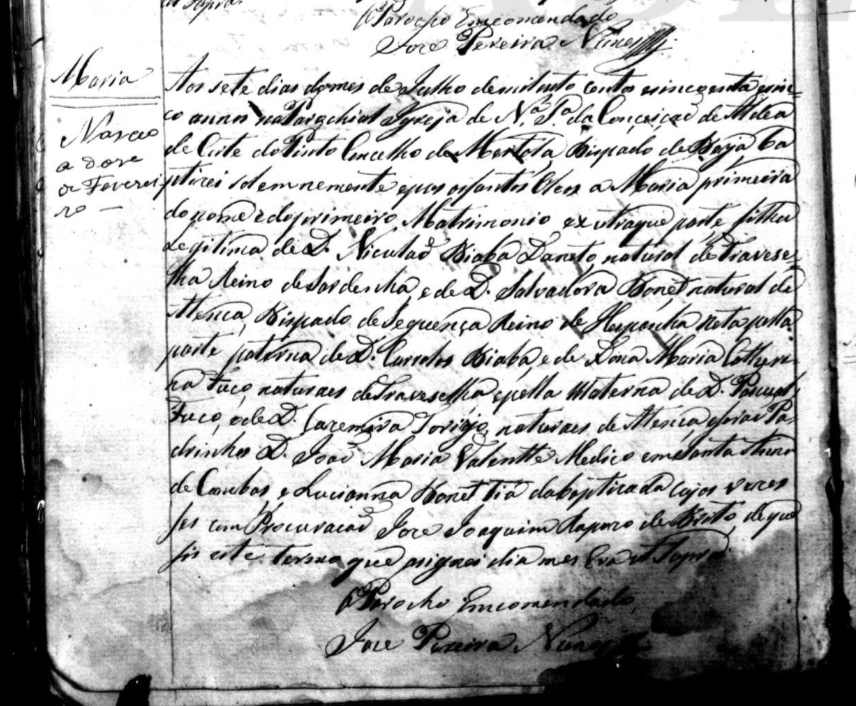 O Parocho Emcomendado
Joze Pereira Nunes
Maria
Nasceo
a doze
de Feverei
ro
Aos sete dias do mes de Julho de mil outo centos e sincoenta e sin
co annos na Parochial Igreja de N.ª S.ª da Conceicaõ de Aldea
de Corte do Pinto Concelho de Mertola Bispado de Beja ba
ptizei solemnemente e pus os santos Oleos a Maria primeira
do nome e do primeiro Matrimonio ex utraque parte filha
Legitima de D. Nicolaõ Biaba natural de Travese
lha Reino de Sardenha, e de D. Salvadora Bonet natural de
Atença, Bispado de Seguença Reino de Hespanha Neta pella
parte paterna de D. Carolos Biaba, e de Dona Maria Catheri
na naturaes de Traveselha e pella Materna de D. Pascual
e de D. Cazemira naturaes de Atença foraõ Pa
drinhos D. Joaõ Maria Valentte Medico em Santa Anna
de Cambas, e Lucianna Bonet tia da baptizada cujas vezes
fes com Procuracaõ Joze Joaquim Raparo de Brito, de que
fis este termo que asignei dia mes Era ut Supra
O Parocho Emcomendado,
Joze Pereira Nunes